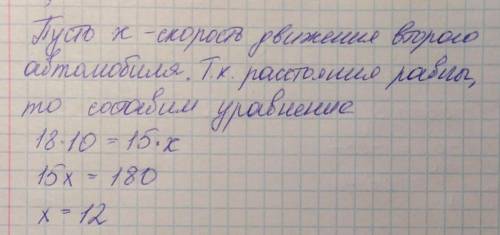 Пусть x - скорость движения второго
автомобиля. Т.к. расстояния равны,
то составим уравнение
18·10 = 15·x
15x = 180
x = 12